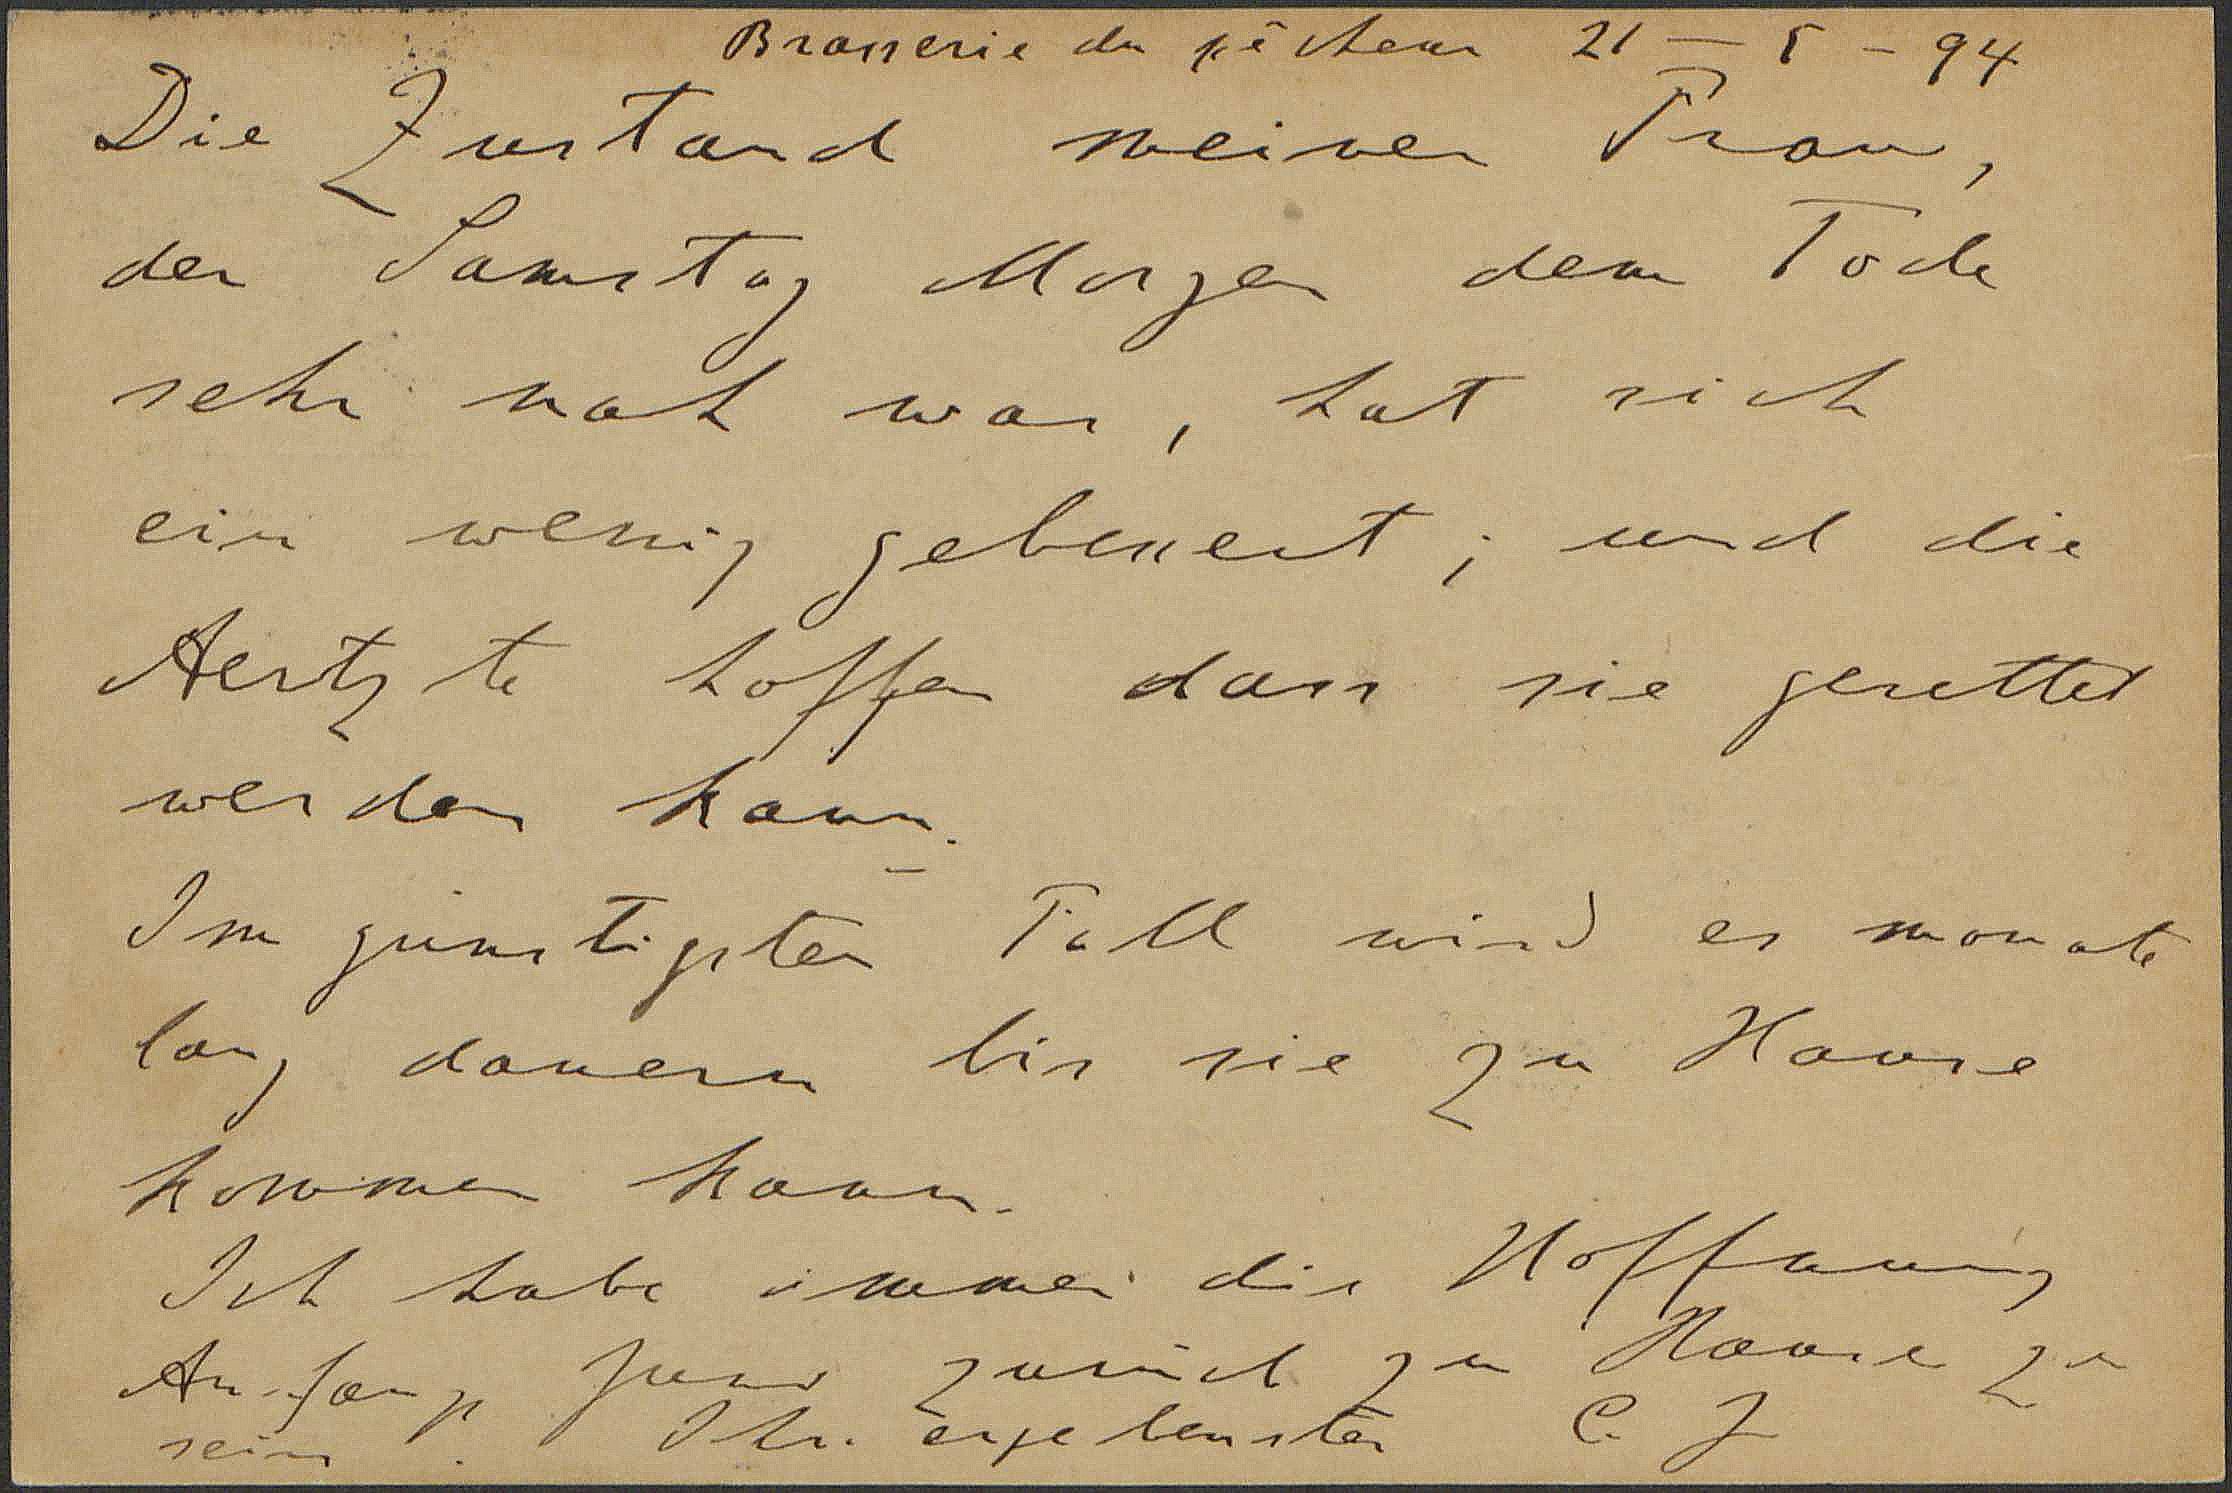 Brasserie du pêcheur 21 — 5 - 94
Die Zustand meiner Frau,
der Samstag Morgen dem Tode
sehr nah war, hat sich
ein wenig gebessert; und die
Aertzte hoffen dass sie gerettet
werden kann.
Im günstigsten Fall wird es monate
lang dauern bis sie zu Hause
kommen kann.
Ich habe immer die Hoffnung
Anfangs Juni zurück zu Hause zu
sein. Ihr ergebenster C. J